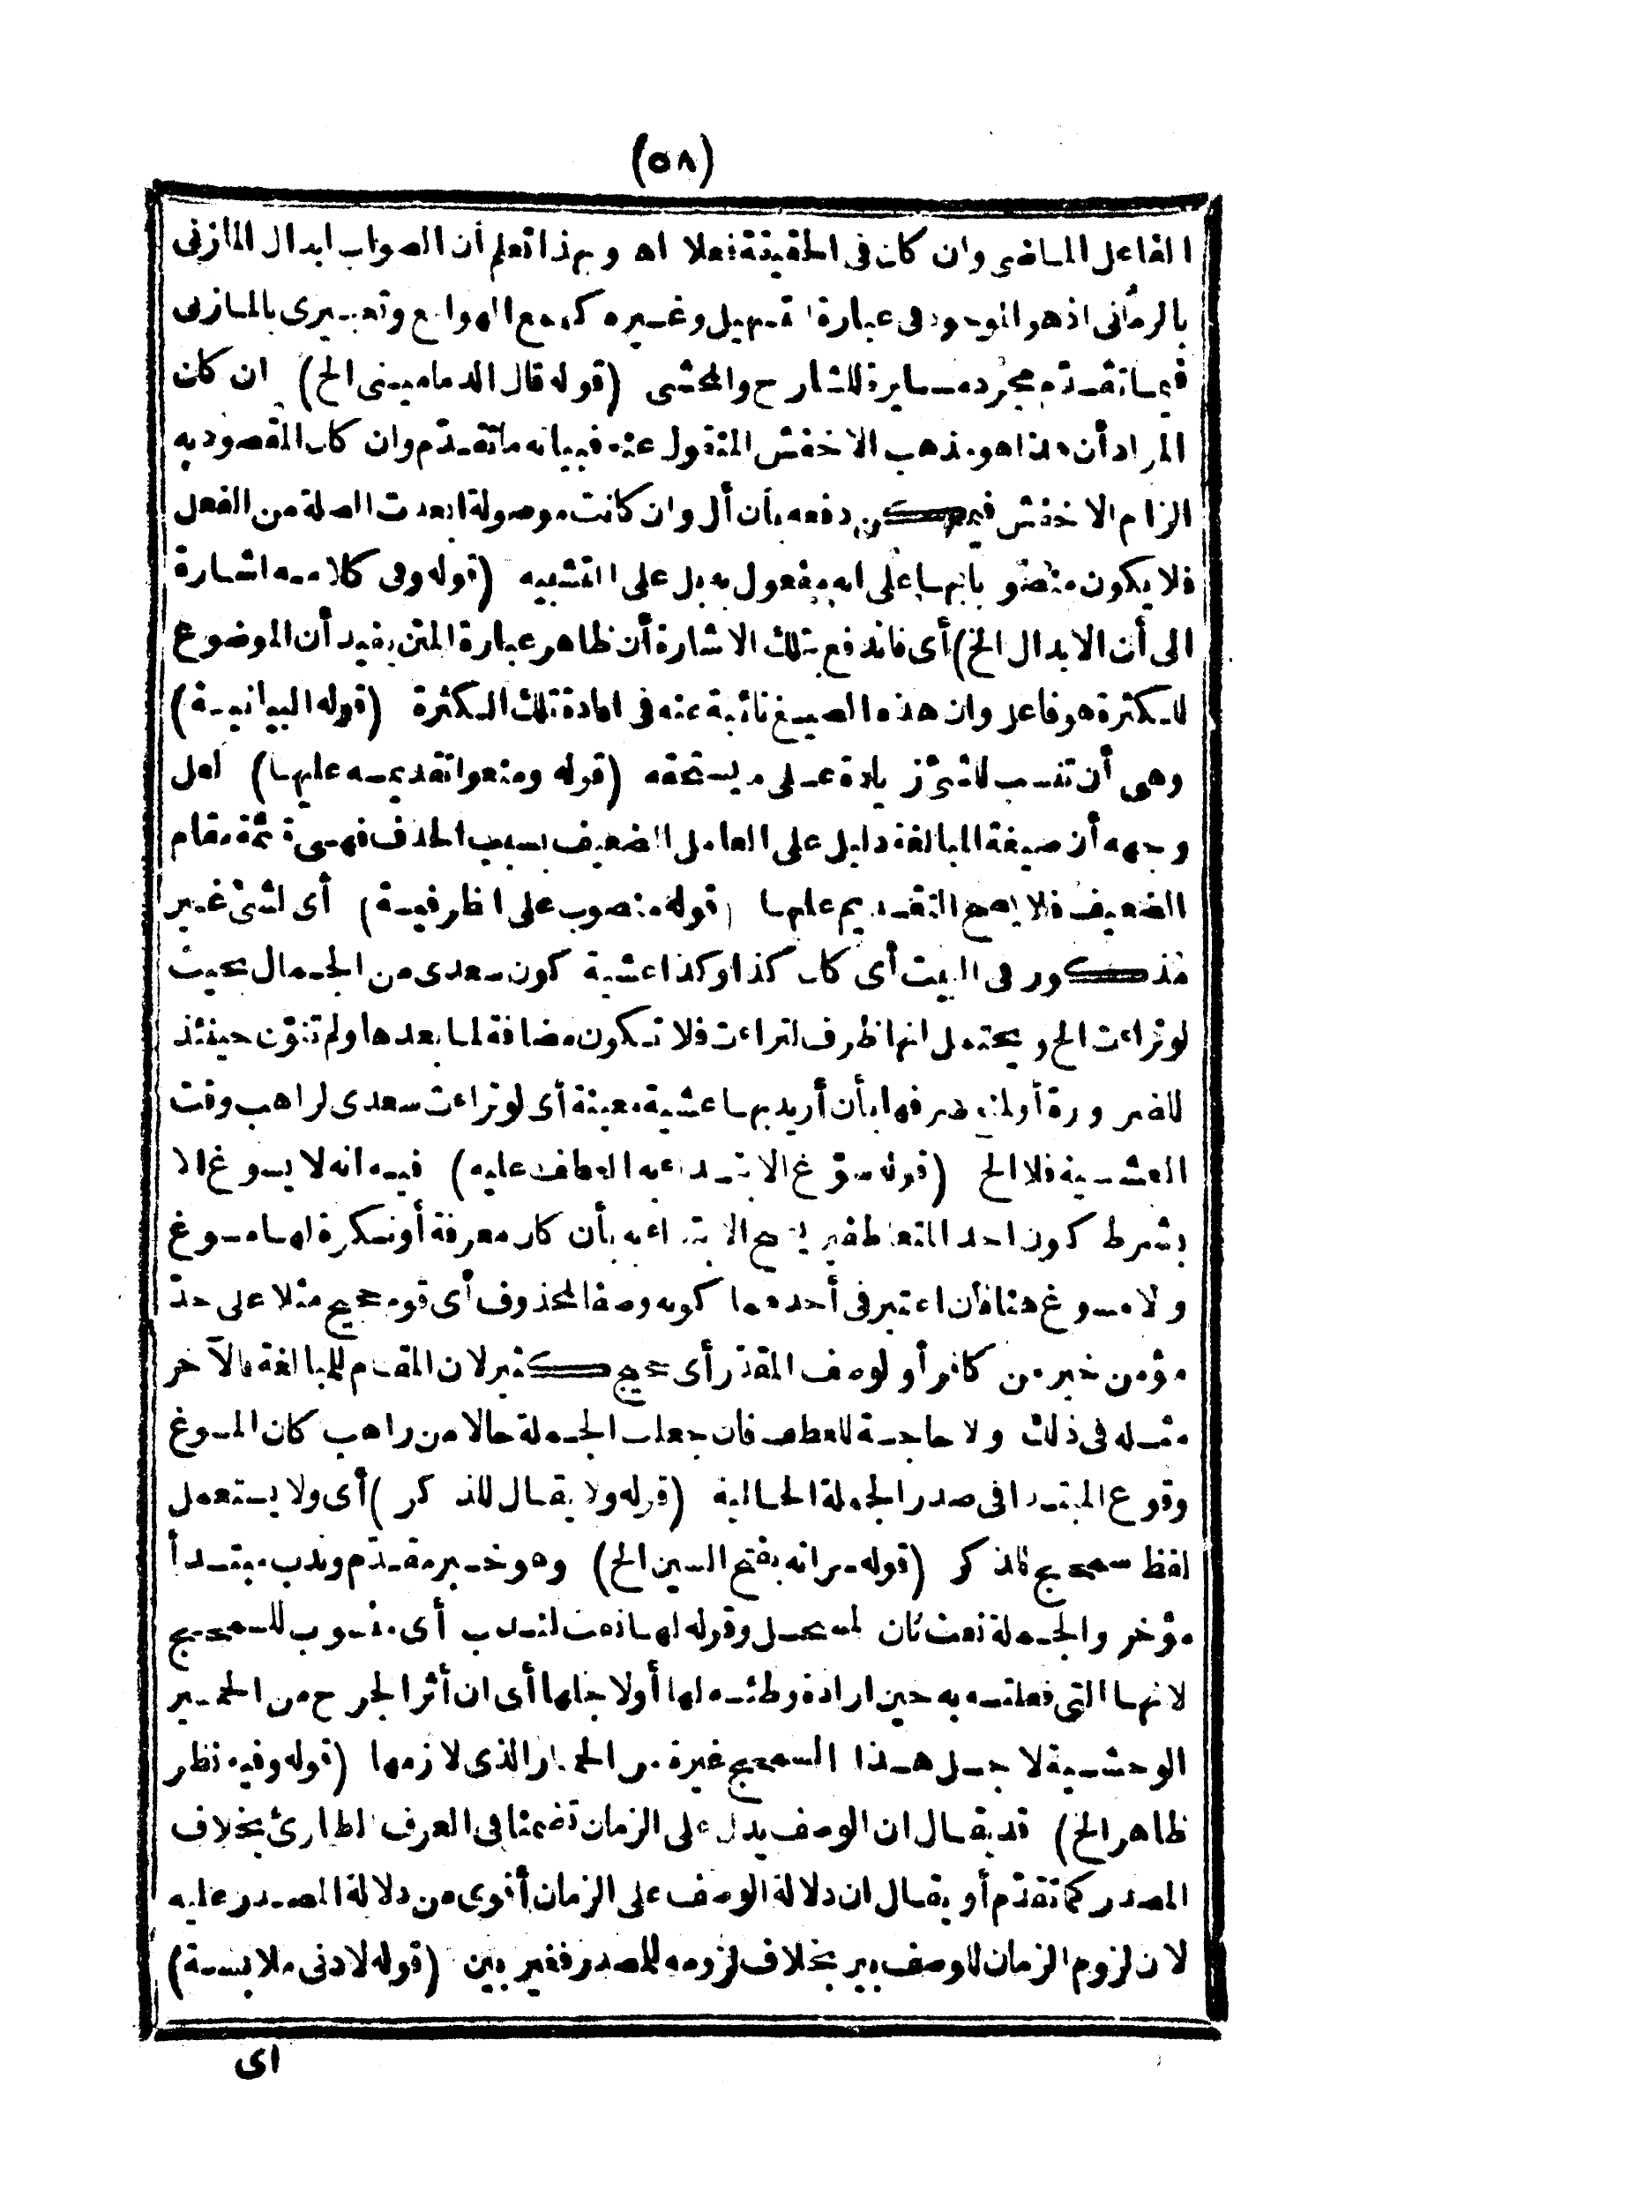 (٥٨)
الفاعل الماضى وان كان فى الحقيقة فعلا اه وبهذا تعلم أن الصواب ابدال المازنى
بالرمانى اذ هو الموجود فى عبارة التسهيل وغيره كهمع الهوامع وتعبيرى بالمازنى
فيما تقدّم مجرد مسايرة للشارح والمحشى (قوله قال الدمامينى الخ) ان كان
المراد أن هذا هو مذهب الاخفش المنقول عنه فبيانه ما تقدّم وان كان المقصود به
الزام الاخفش فيمكن دفعه بأن أل وان كانت موصولة ابعدت الصلة من الفعل
فلا يكون منصوبا بها على انه مفعول به بل على التشبيه (قوله وفى كلامه اشارة
الى أن الابدال الخ) أى فاندفع بتلك الاشارة أن ظاهر عبارة المتن يفيد أن الموضوع
للكثرة هو فاعل وان هذه الصيغ نائبة عنه فى افادة تلك الكثرة (قوله البيانية)
وهى أن تنسب للشئ زيادة على ما يستحقه (قوله ومنعوا تقديمه عليها) لعل
وجهه أن صيغة المبالغة دليل على العامل الضعيف بسبب الحذف فهى قائمة مقام
الضعيف فلا يصح التقديم عليها (قوله منصوب على الظرفية) أى لشئ غير
مذكور فى البيت أى كان كذا وكذا عشية كون سعدى من الجمال بحيث
لو تراءت الخ ويحتمل انها ظرف لتراءت فلا تكون مضافة لما بعدها ولم تنوّن حينئذ
للضرورة أو لمنع صرفها بأن أريد بها عشية معينة أى لو تراءت سعدى لراهب وقت
العشية فلا الخ (قوله سوّغ الابتداء به العطف عليه) فيه انه لا يسوغ الا
بشرط كون احد المتعاطفين يصح الابتداء به بأن كان معرفة أو نكرة لها مسوغ
ولا مسوغ هنا فان اعتبر فى أحدهما كونه وصفا لمحذوف أى قوم حجيج مثلا على حدّ
مؤمن خير من كافر أو لوصف المقدّر أى حجيج كثير لان المقام للمبالغة فالآخر
مثله فى ذلك ولا حاجة للعطف فان جعلت الجملة حالا من راهب كان المسوغ
وقوع المبتدا فى صدر الجملة الحالية (قوله ولا يقال للذكر) أى ولا يستعمل
لفظ سمحج للذكر (قوله سراته بفتح السين الخ) وهو خبر مقدّم وندب مبتدأ
مؤخر والجملة نعت ثان لمسحل وقوله لها نعت لندب أى منسوب للسمحج
لانها التى فعلته به حين ارادة وطئه لها أو لاجلها أى ان أثر الجرح من الحمير
الوحشية لاجل هذا السمحج غيرة من الحمار الذى لازمها (قوله وفيه نظر
ظاهر الخ) قد يقال ان الوصف يدل على الزمان تضمنا فى العرف الطارئ بخلاف
المصدر كما تقدّم أو يقال ان دلالة الوصف على الزمان أقوى من دلالة المصدر عليه
لان لزوم الزمان للوصف بين بخلاف لزومه للمصدر فغير بين (قوله لادنى ملابسة)
اى